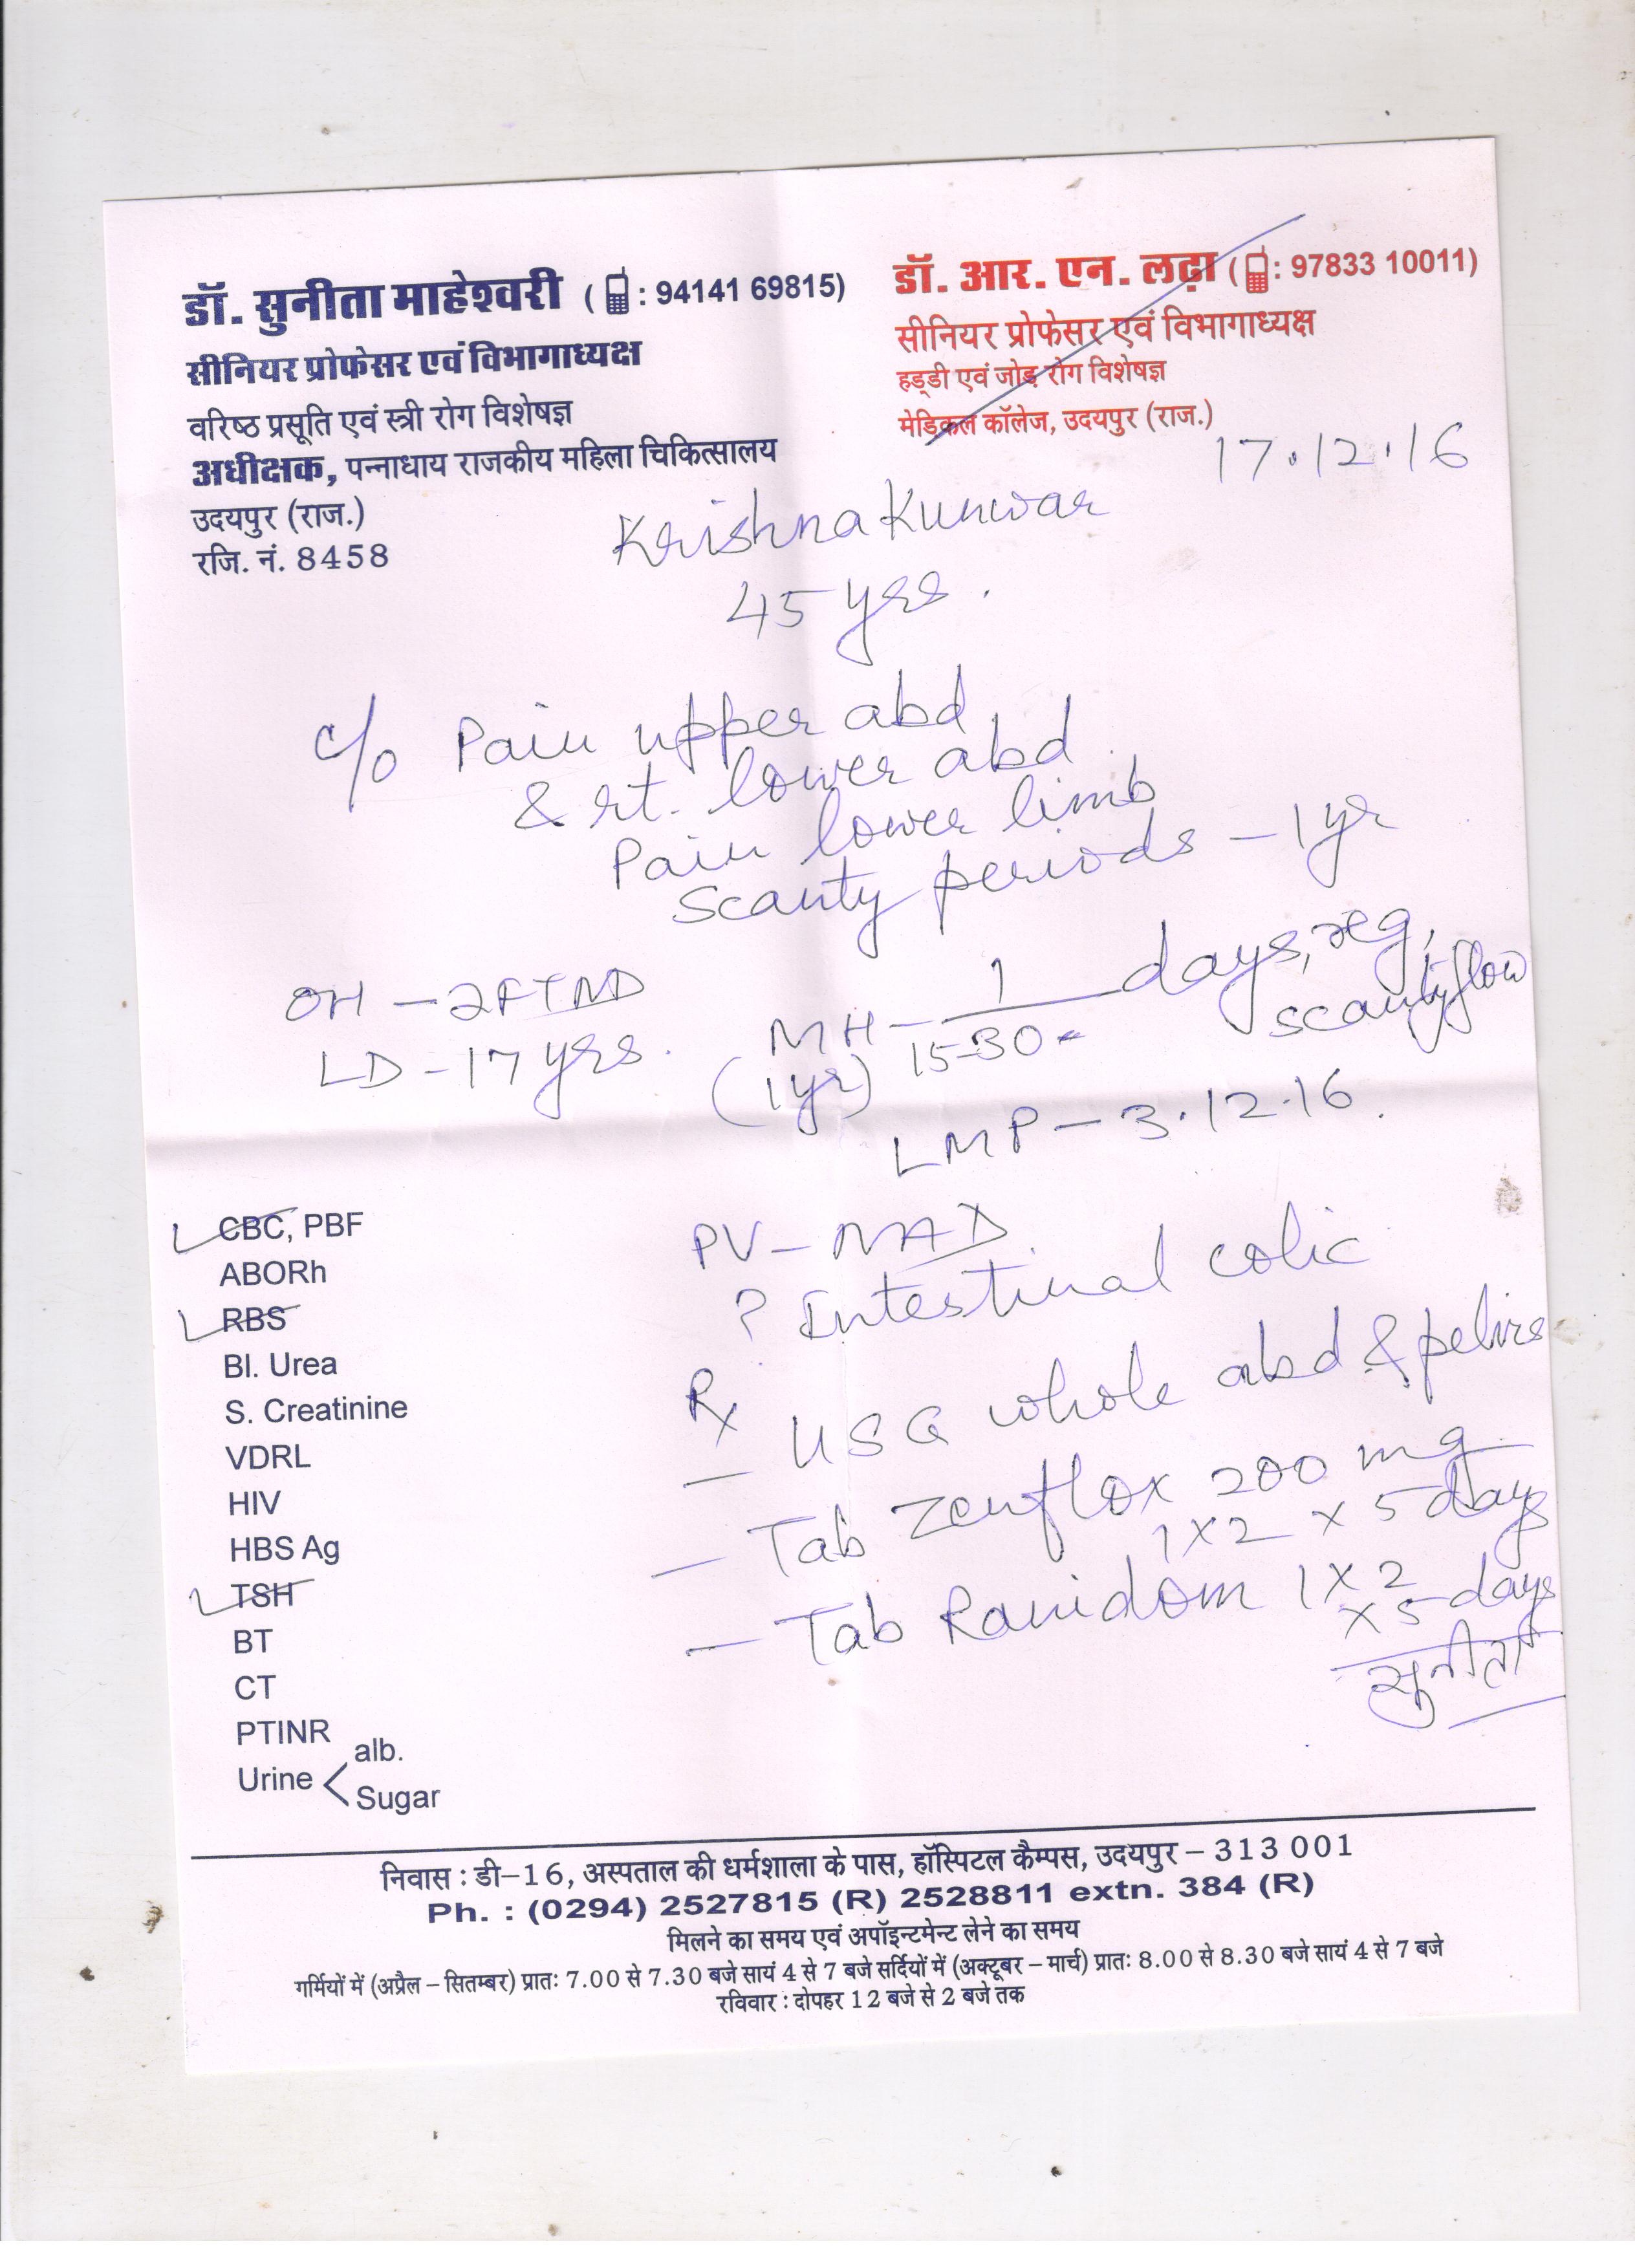 डॉ. सुनीता माहेश्वरी ( : 94141 69815)
सीनियर प्रोफेसर एवं विभागाध्यक्ष
वरिष्ठ प्रसूति एवं स्त्री रोग विशेषज्ञ
अधीक्षक, पन्नाधाय राजकीय महिला चिकित्सालय
उदयपुर (राज.)
रजि. नं. 8458
डॉ. आर. एन. लढ़ा ( : 97833 10011)
सीनियर प्रोफेसर एवं विभागाध्यक्ष
हड्डी एवं जोड़ रोग विशेषज्ञ
मेडिकल कॉलेज, उदयपुर (राज.)
17.12.16
Krishna Kunwar
45 yrs.
c/o Pain upper abd
& rt. lower abd
Pain lower limb
Scanty periods – 1 yr
OH – 2FTND
LD – 17 yrs.
MH – 1 days, reg,
(1yr) 15-30 scanty flow
LMP – 3.12.16.
CBC, PBF
ABORh
RBS
Bl. Urea
S. Creatinine
VDRL
HIV
HBS Ag
TSH
BT
CT
PTINR
Urine < alb.
Sugar
PV – NAD
? Intestinal colic
Rx
– USG whole abd & pelvis
– Tab Zenflox 200 mg
1 x 2 x 5 days
– Tab Ranidom 1 x 2
x 5 days
सुनीता
निवास : डी–16, अस्पताल की धर्मशाला के पास, हॉस्पिटल कैम्पस, उदयपुर – 313 001
Ph. : (0294) 2527815 (R) 2528811 extn. 384 (R)
मिलने का समय एवं अपॉइन्टमेन्ट लेने का समय
गर्मियों में (अप्रैल – सितम्बर) प्रातः 7.00 से 7.30 बजे सायं 4 से 7 बजे सर्दियों में (अक्टूबर – मार्च) प्रातः 8.00 से 8.30 बजे सायं 4 से 7 बजे
रविवार : दोपहर 12 बजे से 2 बजे तक